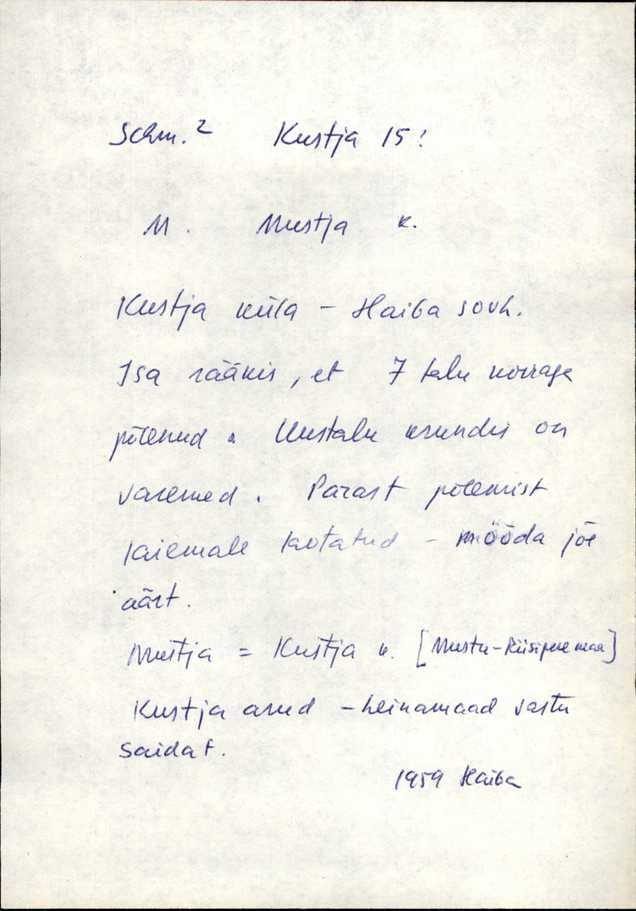 Schm.² Kustja 15!
M. Mustja k.
Kustja küla - Haiba sovh.
Isa rääkis, et 7 talu korraga
põlenud. Uustalu krundis on
varemed. Pärast põlemist
laiemale laotatud - mööda jõe
äärt.
Mustja = Kustja k. [Mustu-Riisipere maa]
Kustja arud - heinamaad vastu
Saidat.
1959 Haiba